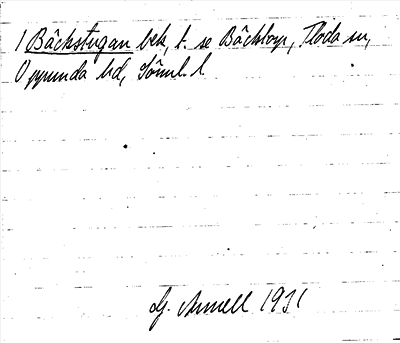 1 Bäckstugan bek, t. se Bäcktorp, Floda sn,
Oppunda hd, Söml. l.
Gf. Arnell 1931